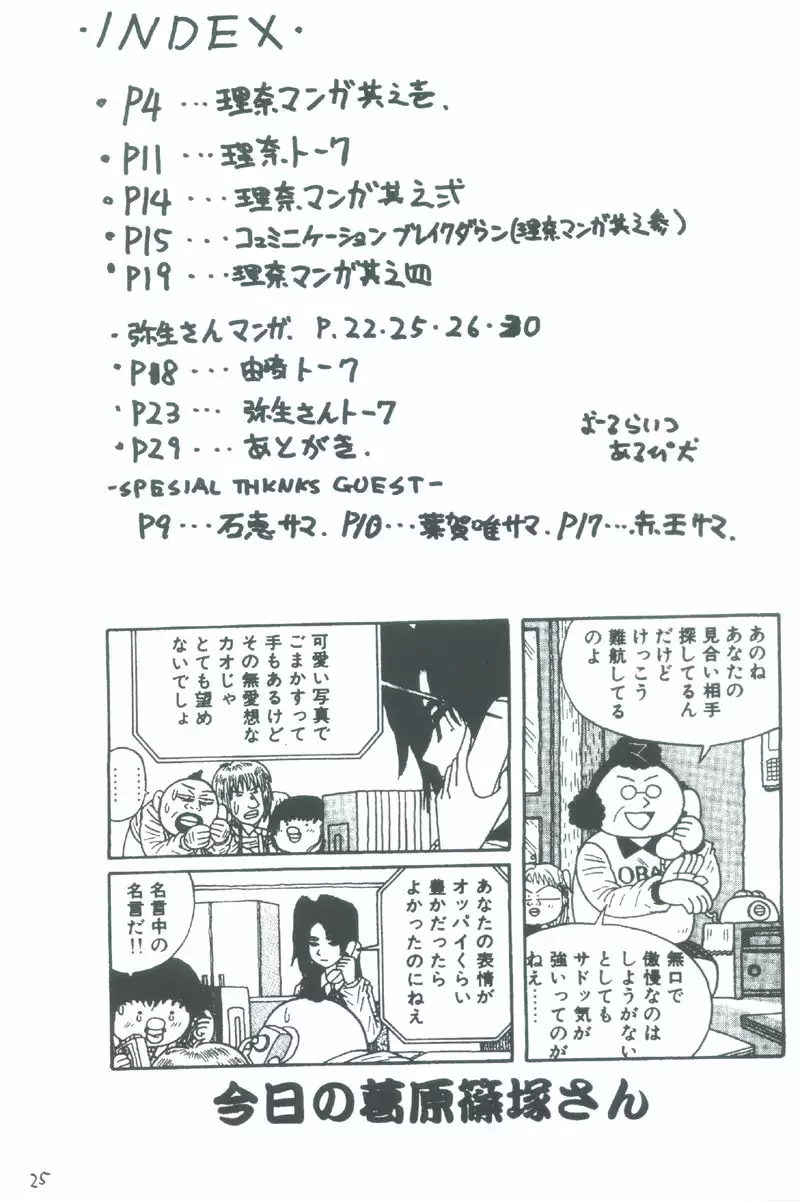 ・INDEX・
・P4 ・・・理奈マンガ其之壱.
・P11 ・・・理奈トーク
・P14 ・・・理奈マンガ其之弐
・P15 ・・・コュミニケーションブレイクダウン(理奈マンガ其之参)
・P19 ・・・理奈マンガ其之四
・弥生さんマンガ. P.22・25・26・30
・P18 ・・・由崎トーク
・P23 ・・・弥生さんトーク
・P29 ・・・あとがき.
-SPESIAL THKNKS GUEST-
P9・・・石恵サマ. P10・・・葉賀唯サマ. P17・・・赤王サマ.
あのね
あなたの
見合い相手
探してるん
だけど
けっこう
難航してる
のよ
マ
OBA
無口で
傲慢なのは
しようがない
としても
サドッ気が
強いってのが
ねえ……
可愛い写真で
ごまかすって
手もあるけど
その無愛想な
カオじゃ
とても望め
ないでしょ
……
あなたの表情が
オッパイくらい
豊かだったら
よかったのにねえ
名言中の
名言だ!!
今日の葛原篠塚さん
25